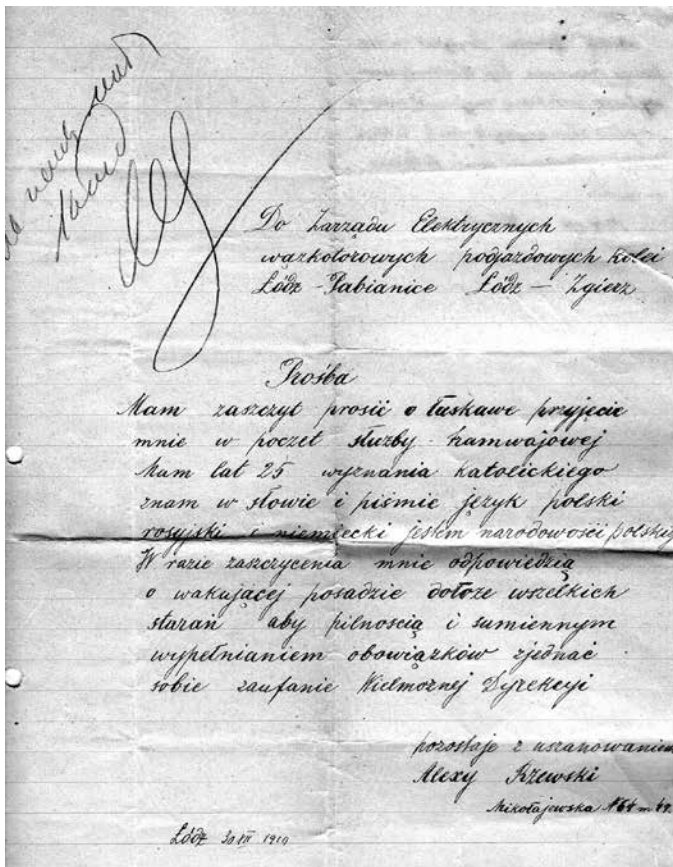 Do Zarządu Elektrycznych
wązkotorowych podjazdowych kolei
Łódź - Pabianice Łódź — Zgierz
Prośba
Mam zaszczyt prosić o łaskawe przyjęcie
mnie w poczet służby tramwajowej
Mam lat 25 wyznania katolickiego
znam w słowie i piśmie język polski
rosyjski i niemiecki jestem narodowości polskiej
W razie zaszczycenia mnie odpowiedzią
o wakującej posadzie dołoże wszelkich
starań aby pilnością i sumiennym
wypełnianiem obowiązków zjednać
sobie zaufanie Wielmożnej Dyrekcyi
pozostaje z uszanowaniem
Alexy Rzewski
Mikołajewska № 64 m
Łódź 30 1910